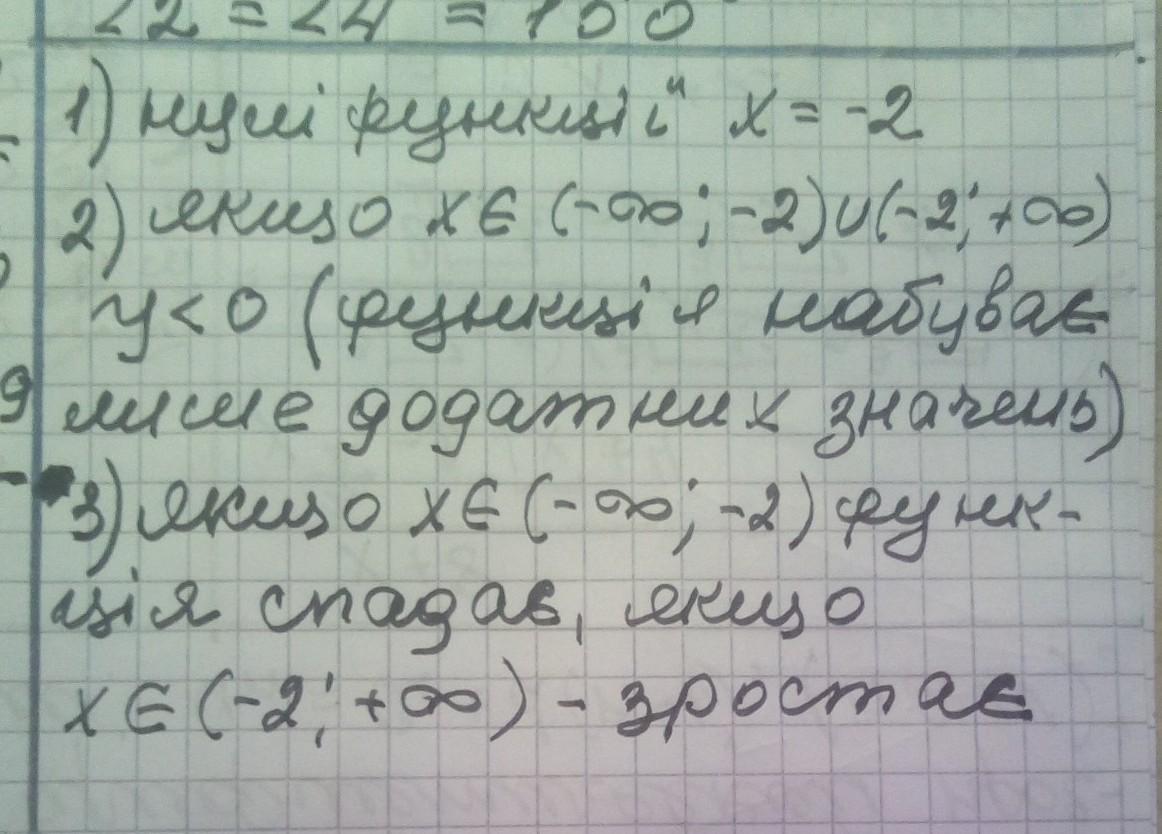 <2 = <4 = 150
1) нулі функції x = -2
2) якщо x ∈ (-∞; -2) ∪ (-2; +∞)
y < 0 (функція набуває
лише додатних значень)
3) якщо x ∈ (-∞; -2) функ-
ція спадає, якщо
x ∈ (-2; +∞) - зростає